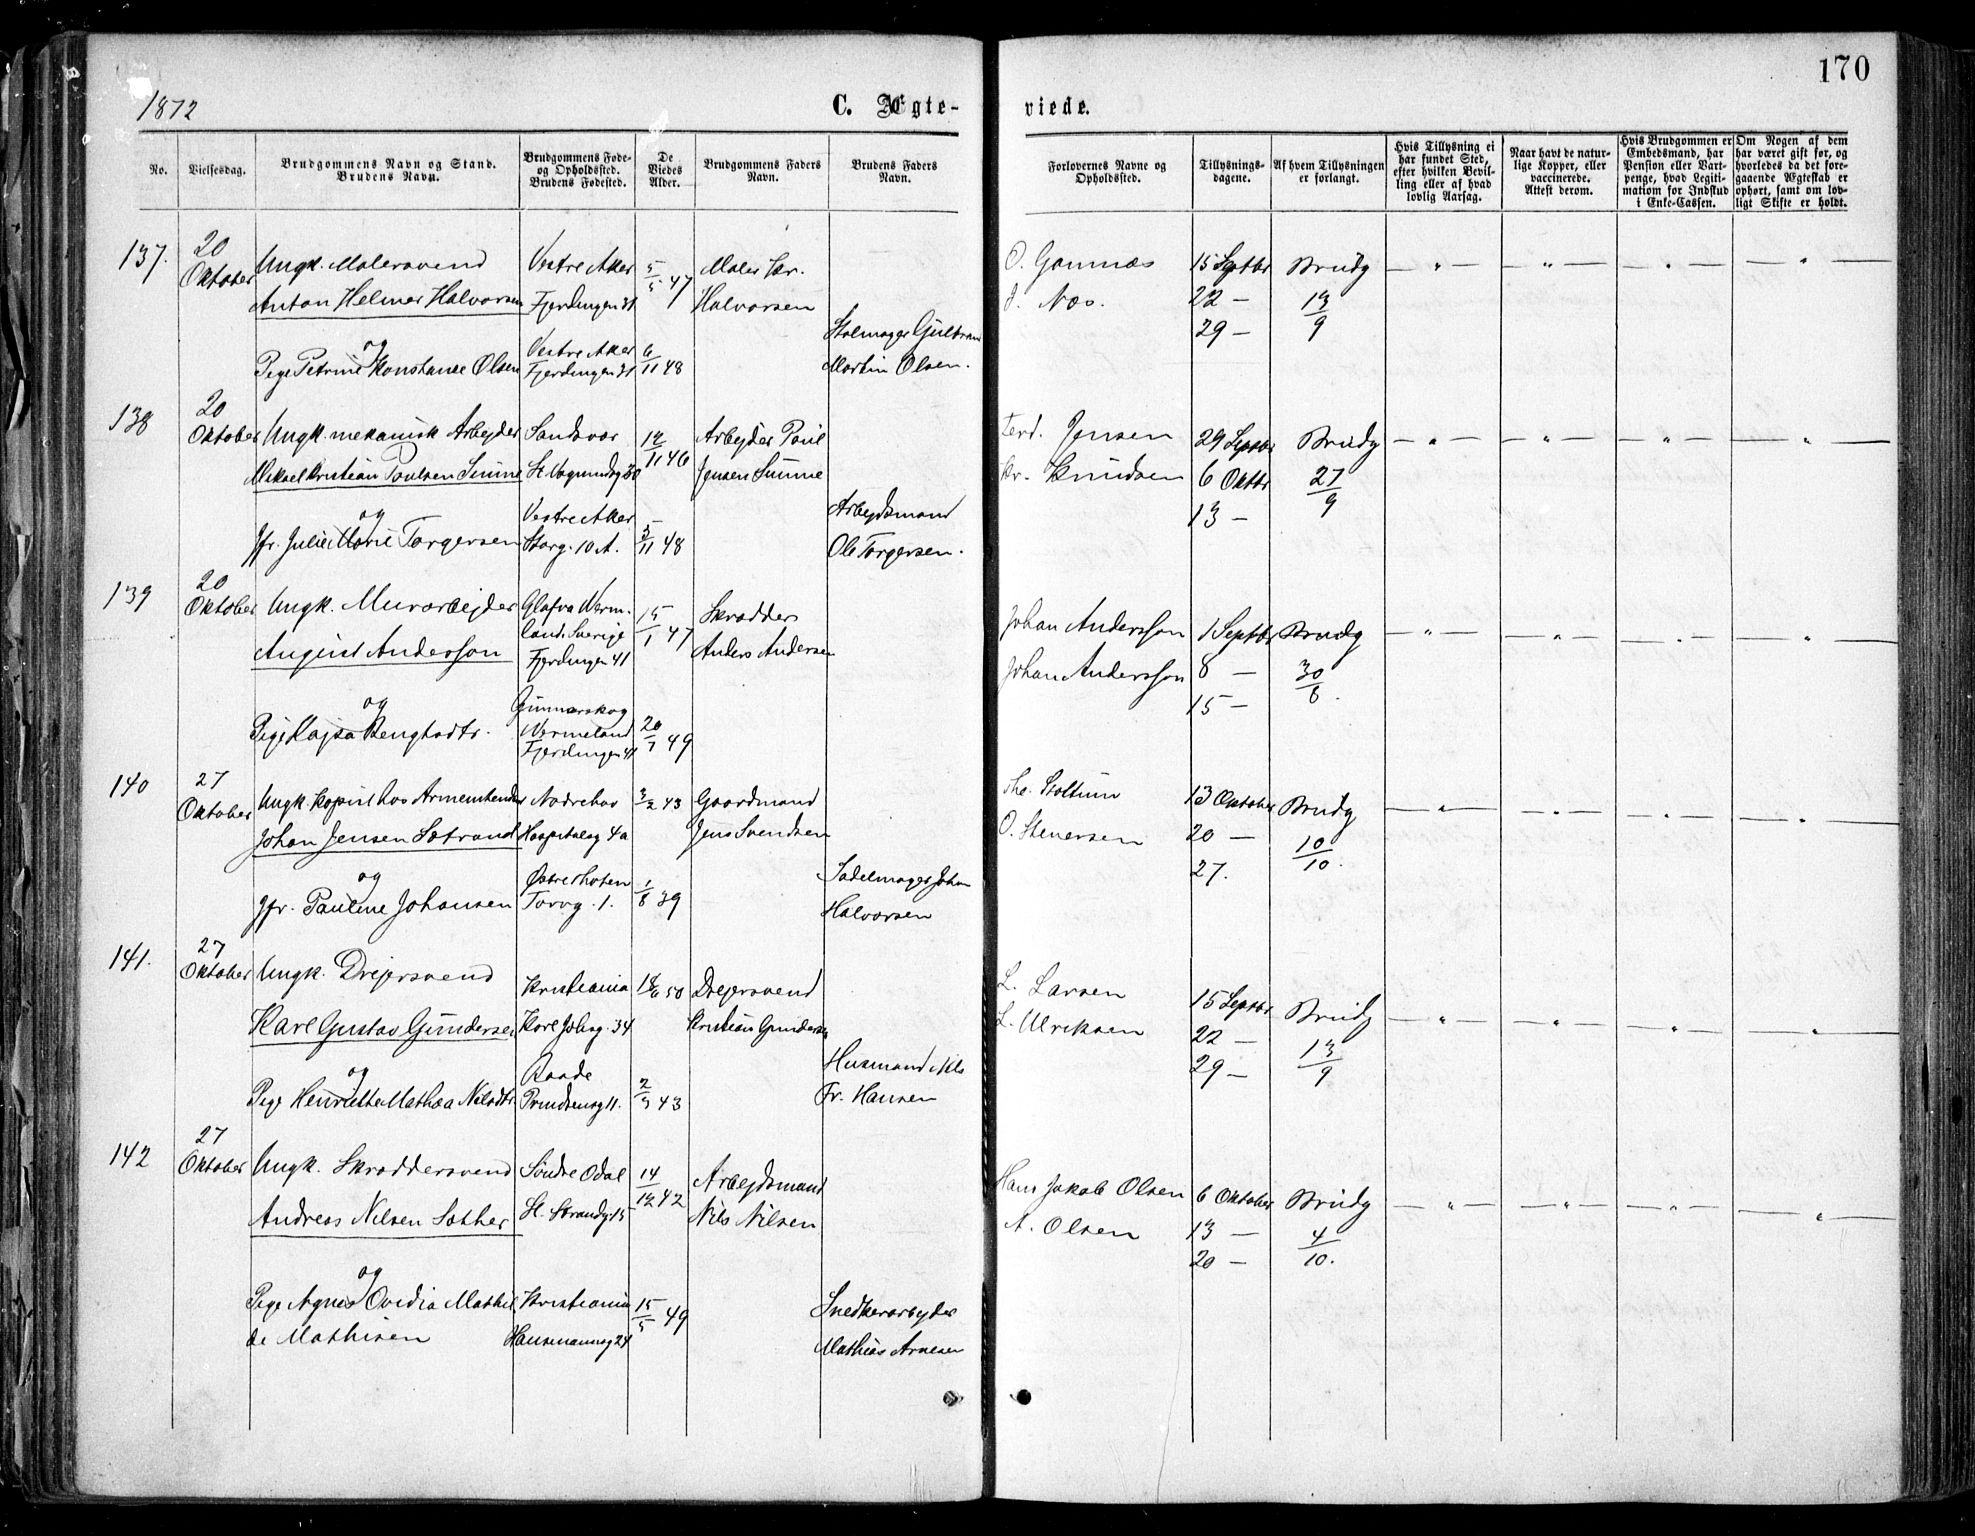 170
1872
C. Ægte-
viede.
No.
Vielsesdag.
Brudgommens Navn og Stand.
Brudens Navn.
Brudgommens Føde-
og Opholdssted.
Brudens Fødested.
De
Viedes
Alder.
Brudgommens Faders
Navn.
Brudens Faders
Navn.
Forlovernes Navne og
Opholdssted.
Tillysnings-
dagene.
Af hvem Tillysningen
er forlangt.
Hvis Tillysning ei
har fundet Sted,
efter hvilken Bevil-
ling eller af hvad
lovlig Aarsag.
Naar havt de natur-
lige Kopper, eller
vaccinerede.
Attest derom.
Hvis Brudgommen er
Embedsmand, har
Pension eller Vart-
penge, hvad Legiti-
mation for Indskud
i Enke-Cassen.
Om Nogen af dem
har været gift før, og
hvorledes da det fore-
gaaende Ægteskab er
ophørt, samt om lov-
ligt Skifte er holdt.
137.
20
Oktober
Ungk. Malersvend
Anton Helmer Halvorsen
og
Pige Petrine Konstanse Olsen
Vestre Aker
Fjerdingen 31
Vestre Aker
Fjerdingen 31
5/5 47
6/11 48
Maler Kr.
Halvorsen
Stolmager Gulbrand
Martin Olsen.
O. Gamnæs
J. Næs.
15 Septbr
22 —
29 —
Brudg
13/9
138
20
Oktober
Ungk. mekanisk Arbejder
Mikael Kristian Paulsen Sunne
og
Jfr. Julie Marie Torgersen
Sandsvær
St. Vognmdsg 30
Vestre Aker
Storg. 10 A.
12/11 46
5/11 48
Arbejder Poul
Jensen Sunne
Arbejdsmand
Ole Torgersen.
Ferd. Jensen
Kr. Knudsen
29 Septbr
6 Oktbr
13 —
Brudg
27/9
139
20
Oktober
Ungk. Murarbejder
August Anderson
og
Pige Kajsa Bengtsdtr.
Glafva Verm-
land. Sverige
Fjerdingen 41
Gunnarskog
Vermeland
Fjerdingen 41
15/1 47
20/7 49
Skrædder
Anders Andersen
Johan Andersson
Johan Andersson
1 Septbr
8 —
15 —
Brudg
30/8.
140
27
Oktober
Ungk. Kopist hos
Johan Jensen Sætrand
og
Jfr. Pauline Johansen
Norderhov
Hospitalsg 4a
Østre Toten
Torvg. 1.
3/2 43
1/8 39
Gaardmand
Jens Svendsen
Sadelmager Johan
Halvorsen
O. Stenersen
13 Oktober
20 —
27.
Brudg
10/10.
141.
27
Oktober
Ungk. Drejersvend
Karl Gustav Gundersen
og
Pige Henriette Mathea Nilsdtr.
Kristiania
Karl Johsg. 34
Raade
Prindsensg 11.
18/6 50
43
Drejersvend
Kristian Gundersen
Husmand Nils
Fr. Hansen
L. Larsen
L. Ulriksen
15 Septbr
22 —
29 —
Brudg
13/9
142
27
Oktober
Ungk. Skræddersvend
Andreas Nilsen Sæther
og
Pige Agnes Ovidia Mathil
de Mathisen
Søndre Odal
St. Strandg. 15
Kristiania
Hausmannsg 24
14/12 42
15/5 49
Arbejdsmand
Nils Nilsen
Snedkerarbejder
Mathias Arnesen
Hans Jakob Olsen
A. Olsen
6 Oktober
13 —
20 —
Brudg
4/10.